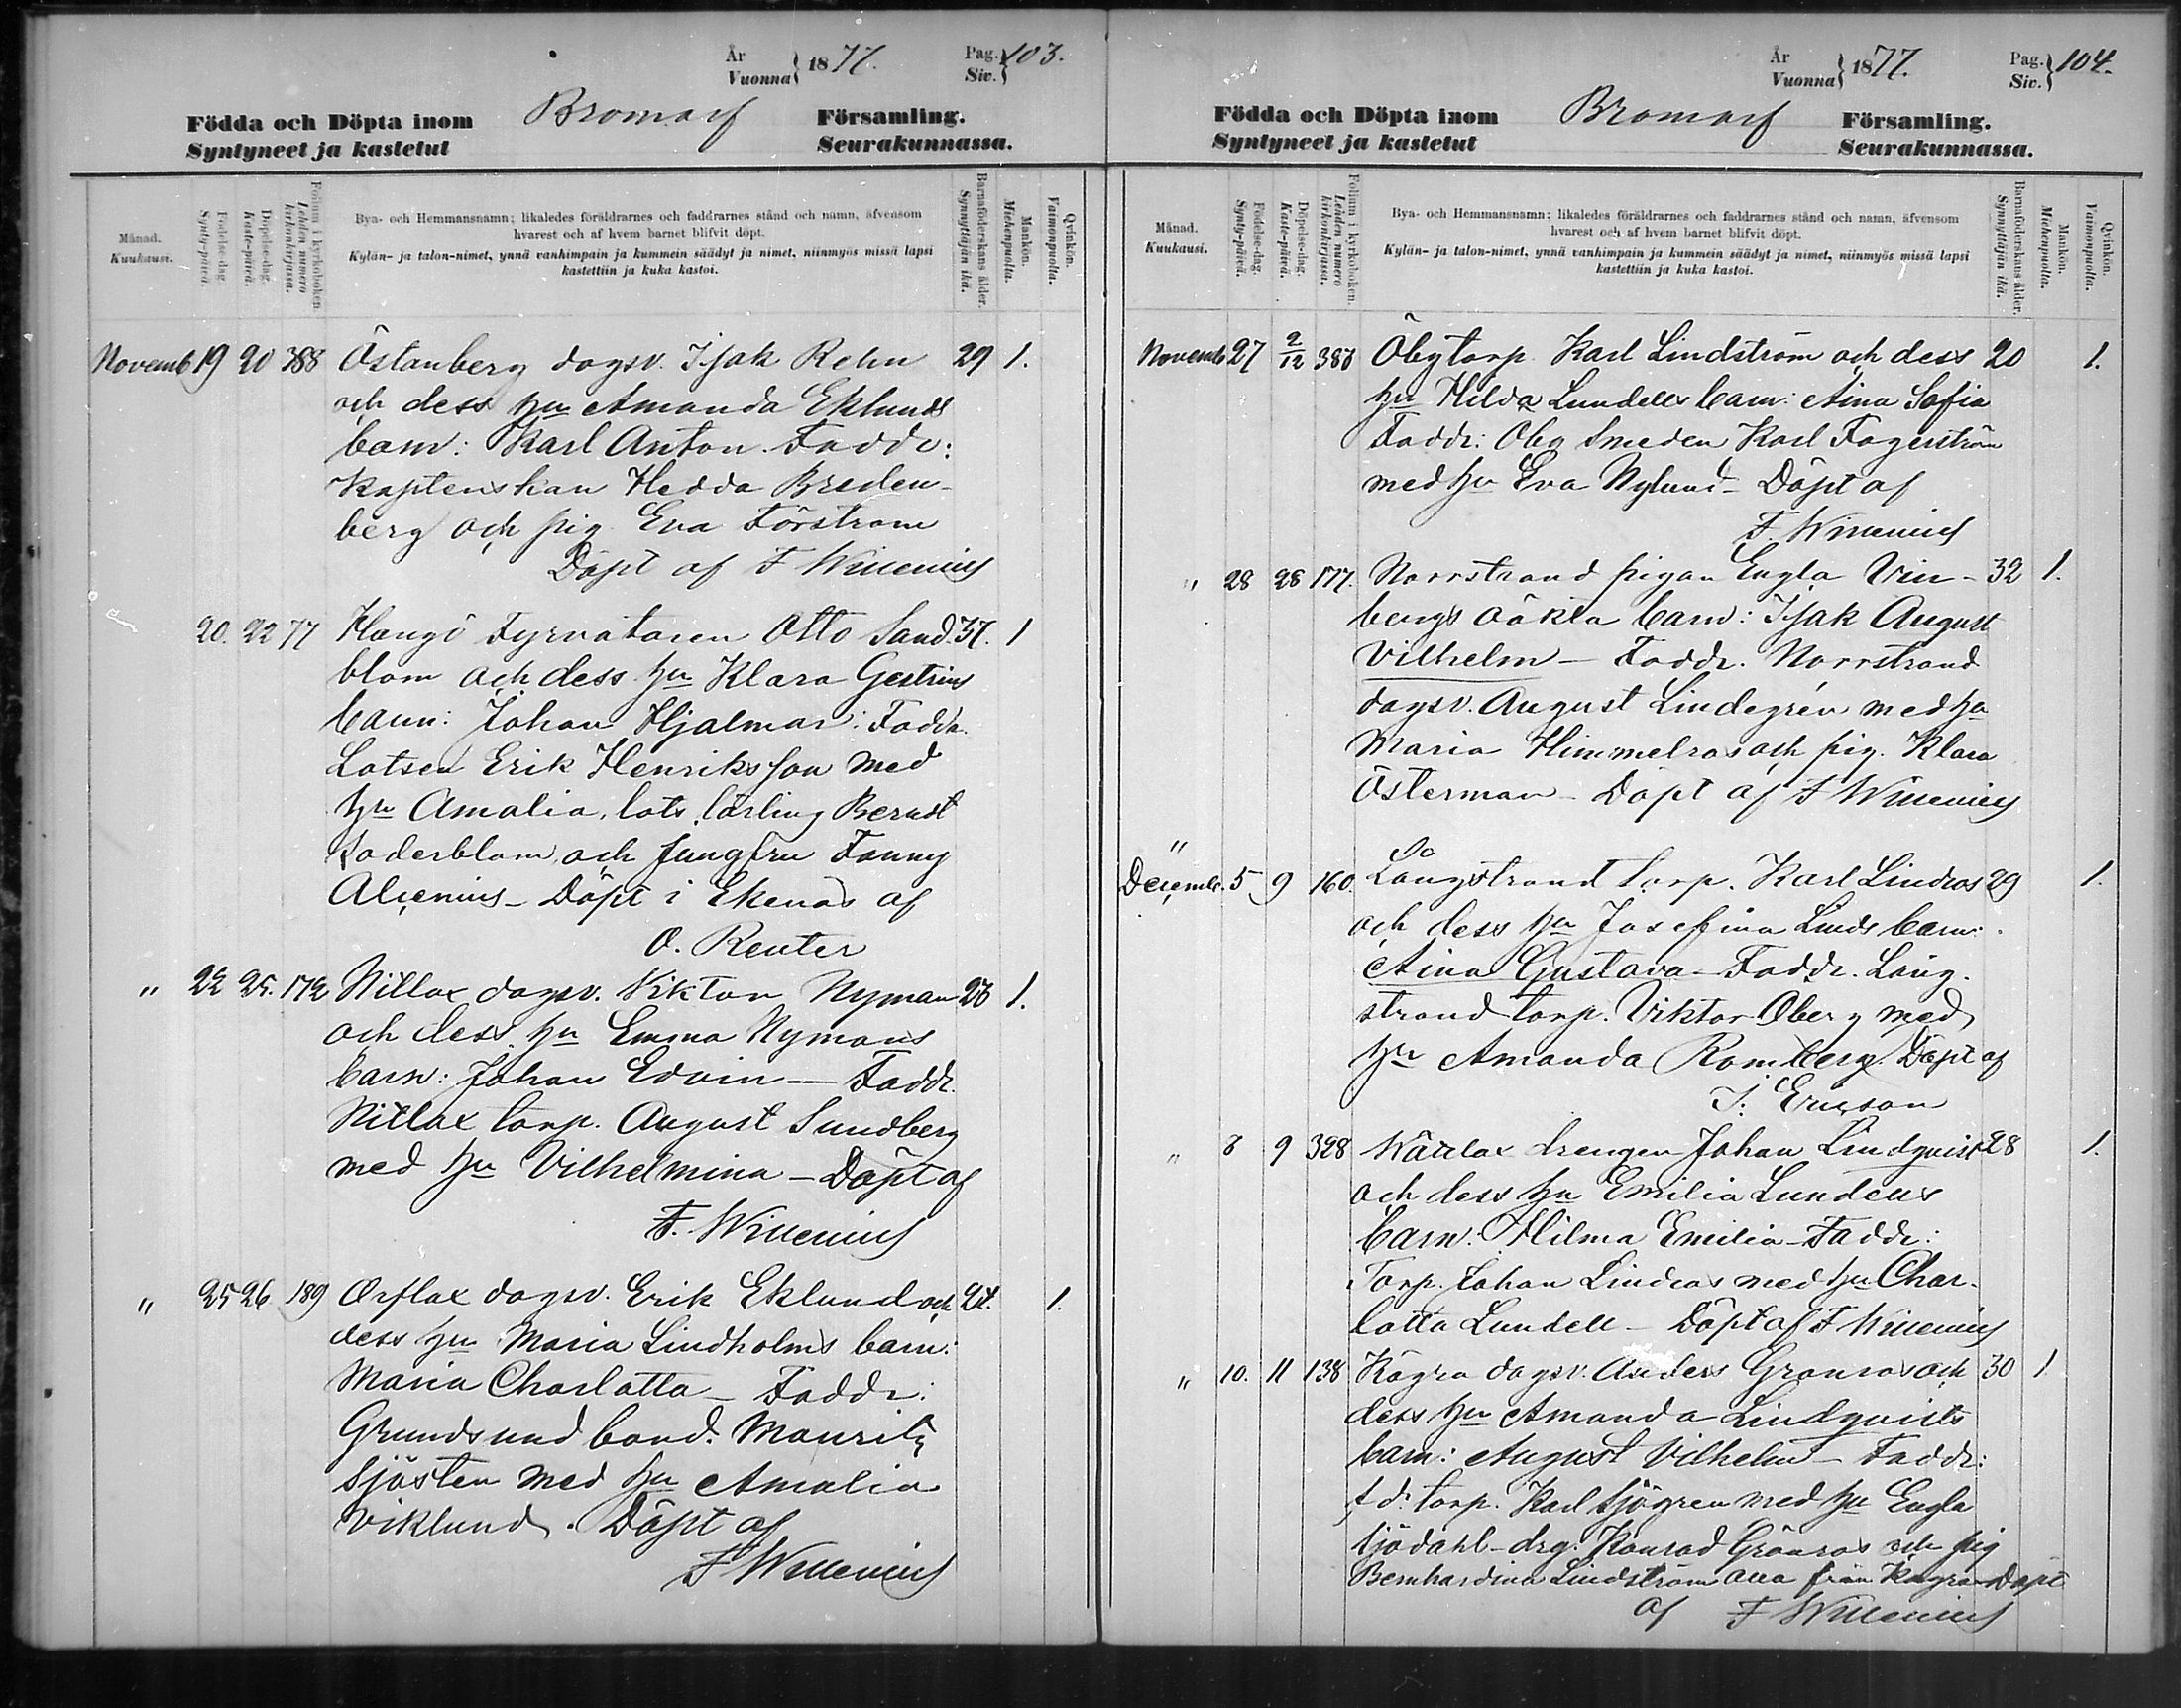 År
Vuonna } 1877.
Pag.
Siv. } 103.
Födda och Döpta inom Bromarf Församling.
Syntyneet ja kastetut Seurakunnassa.
Månad.
Kuukausi.
Födelse-dag.
Synty-päivä.
Döpelse-dag.
Kaste-päivä.
Folium i kyrkoboken.
Lehden numero kirkonkirjassa.
Bya- och Hemmansnamn; likaledes föräldrarnes och faddrarnes stånd och namn, äfvensom
hvarest och af hvem barnet blifvit döpt.
Kylän- ja talon-nimet, ynnä vanhimpain ja kummein säädyt ja nimet, niinmyös missä lapsi
kastettiin ja kuka kastoi.
Barnaföderskans ålder.
Synnyttäjän ikä.
Mankön.
Miehenpuolta.
Qvinkön.
Vaimonpuolta.
Novemb 19 20 388 Östanberg dagsv. Isak Rehn 29 1.
och dess hu Amanda Eklunds
barn: Karl Anton. Faddr:
Kaptenskan Hedda Breden-
berg och pig. Eva Förström
Döpt af F Willenius
20. 22 77 Hangö Fyrvaktaren Otto Sand. 37. 1
blom och dess hu Klara Gestrins
barn: Johan Hjalmar: Faddr.
Lotsen Erik Henriksson med
hu Amalia, lots lärling Bernst
Soderblom, och Jungfru Fanny
Alcenius - Döpt i Ekenäs af
O. Reuter
" 22 25. 172 Nitlax dagsv. Viktor Nyman 26 1.
och dess hu Emma Nymans
barn: Johan Edvin - Faddr.
Nitlax torp. August Sundberg
med hu Vilhelmina - Döpt af
F. Willenius
" 25 26 189 Orflax dagsv. Erik Eklund och 24. 1.
dess hu Maria Lindholms barn:
Maria Charlotta - Faddr:
Grundsund bond. Mauritz
Sjösten med hu Amalia
Viklund. Döpt af
F Willenius
År
Vuonna } 1877.
Pag.
Siv. } 104.
Födda och Döpta inom Bromarf Församling.
Syntyneet ja kastetut Seurakunnassa.
Månad.
Kuukausi.
Födelse-dag.
Synty-päivä.
Döpelse-dag.
Kaste-päivä.
Folium i kyrkoboken.
Lehden numero kirkonkirjassa.
Bya- och Hemmansnamn; likaledes föräldrarnes och faddrarnes stånd och namn, äfvensom
hvarest och af hvem barnet blifvit döpt.
Kylän- ja talon-nimet, ynnä vanhimpain ja kummein säädyt ja nimet, niinmyös missä lapsi
kastettiin ja kuka kastoi.
Barnaföderskans ålder.
Synnyttäjän ikä.
Mankön.
Miehenpuolta.
Qvinkön.
Vaimonpuolta.
Novemb 27 2/12 386 Öby torp. Karl Lindström och dess 20 1.
hu Hilda Lundells barn: Aina Sofia
Faddr: Öby Smeden Karl Fagerström
med hu Eva Nylund - Döpt af
F. Willenius
" 28 28 177. Norrstrand pigan Engla Vin- 32 1.
bergs oäkta barn: Isak August
Vilhelm - Faddr. Norrstrand
dagsv. August Lindegrén med hu
Maria Himmelros och pig. Klara
Österman - Döpt af F Willenius
"
Decemb. 5 9 160. Långstrand torp. Karl Lindros 29 1.
och dess hu Josefina Linds barn:
Aina Gustava - Faddr. Lång-
strand torp. Viktor Öberg med
hu Amanda Romberg. Döpt af
J. Ericson
" 8 9 328 Wättlax drengen Johan Lindqvist 28 1.
och dess hu Emilia Lundells
barn: Hilma Emilia - Faddr:
Torp. Johan Lindros med hu Char-
lotta Lundell - Döpt af F Willenius
" 10. 11 138 Kägra dagsv. Anders Grönros och 30 1
dess hu Amanda Lindqvists
barn: August Vilhelm - Faddr:
f.d. torp. Karl Sjögren med hu Engla
Sjödahl - drg. Konrad Grönros och pig
Bernhardina Lindström alla från Kägra - Döpt
af F Willenius